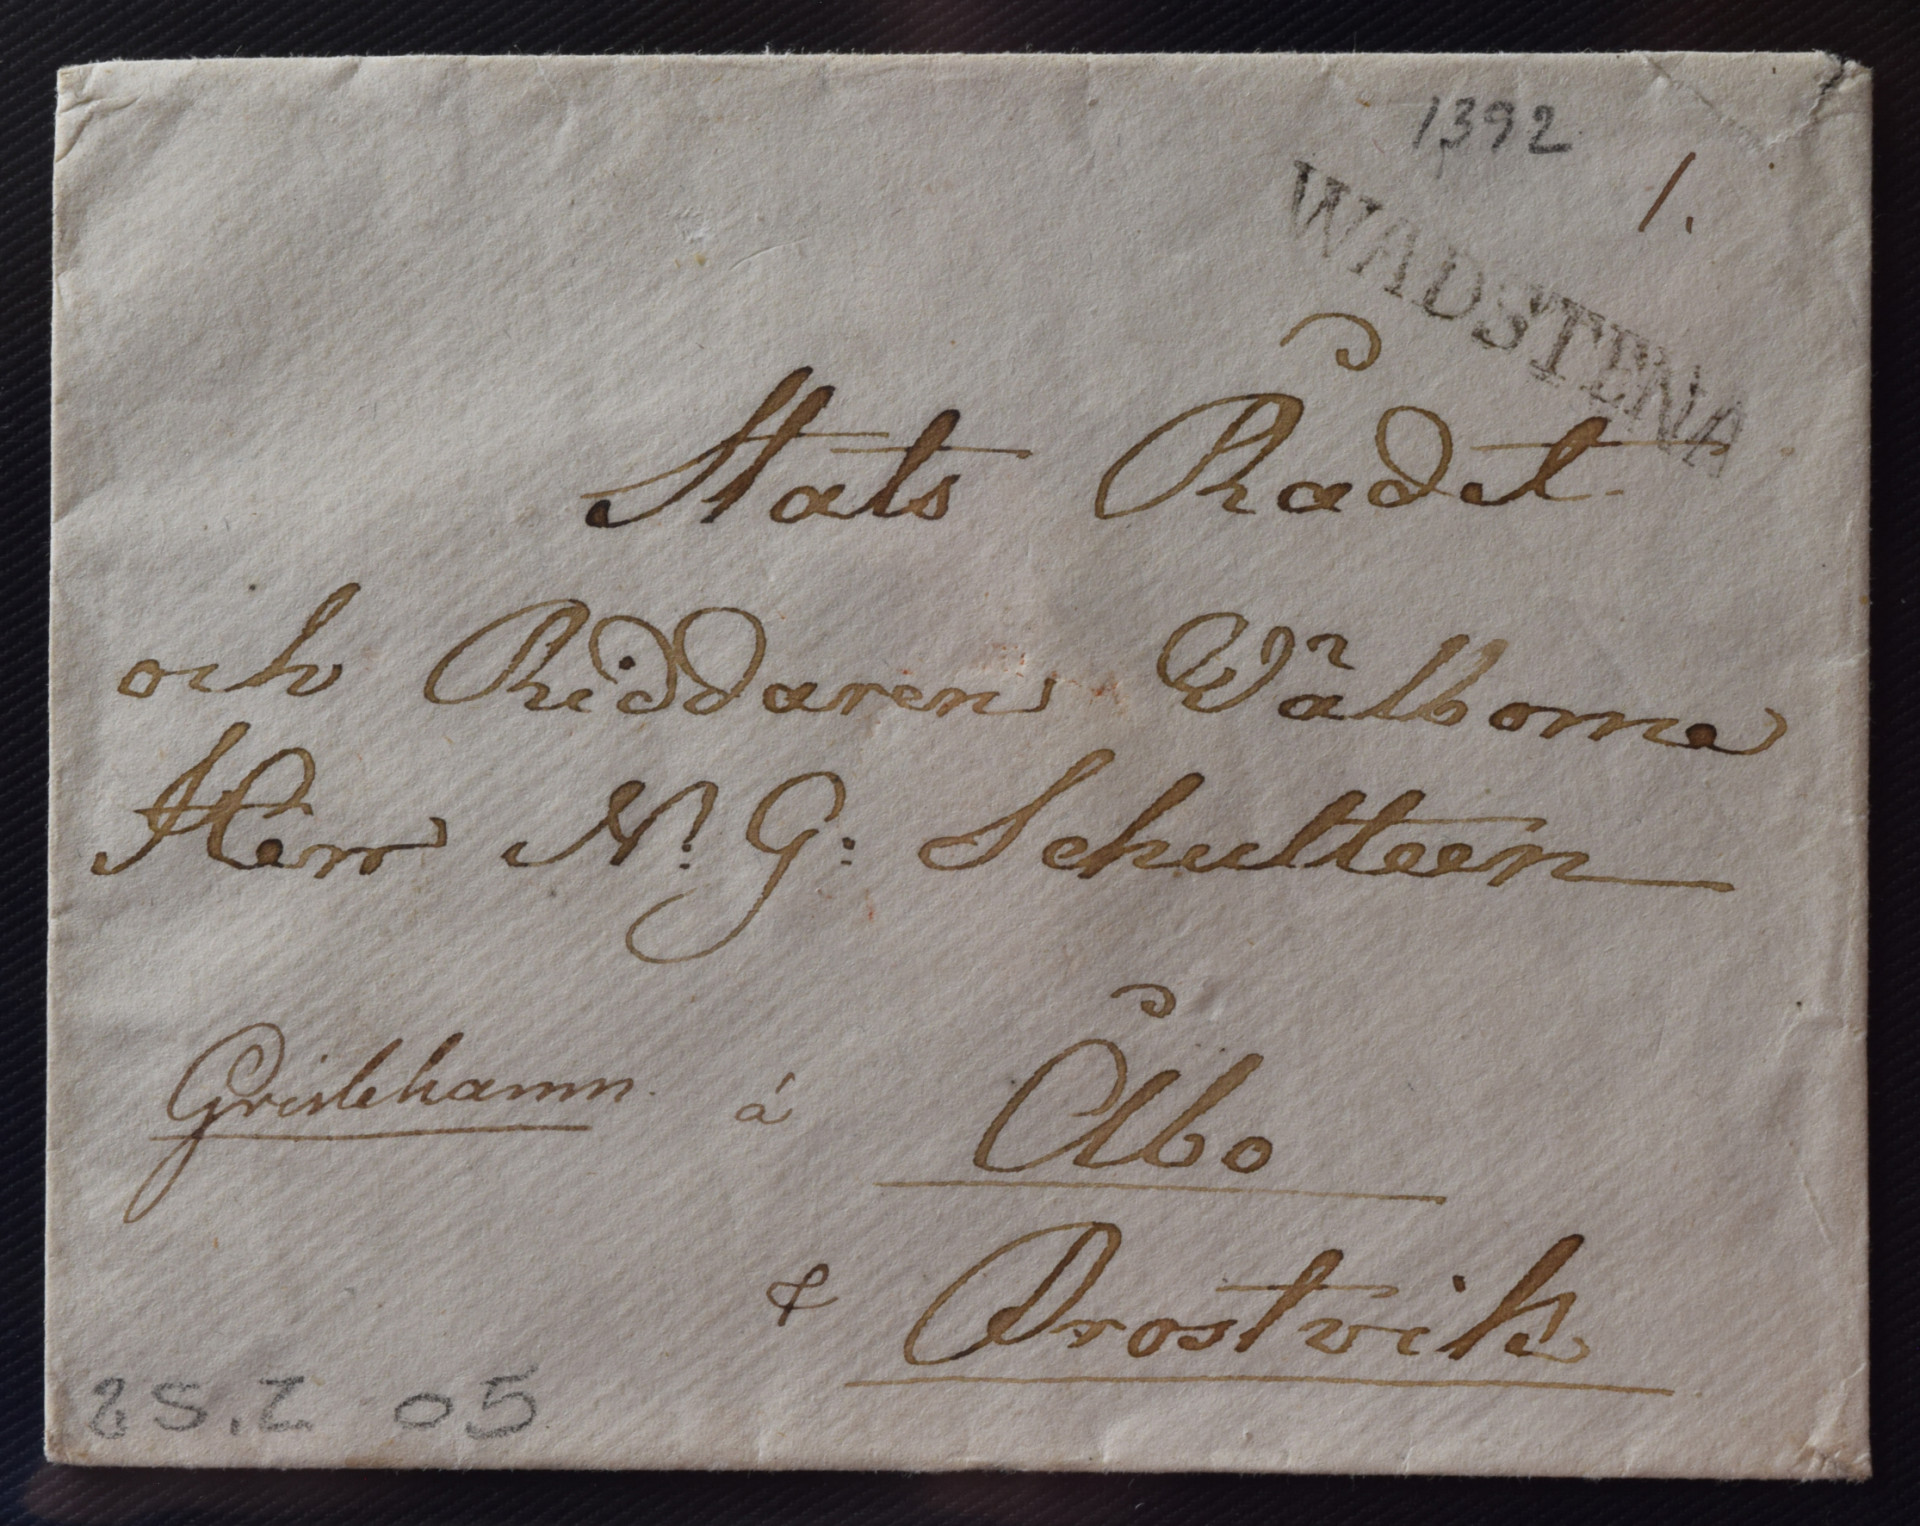 1392
1.
WADSTENA
Stats Rådet
och Riddaren Wälborne
Herr N. G: Schulteen
Grislehamn. á Åbo
& Drostvik
25.2 05